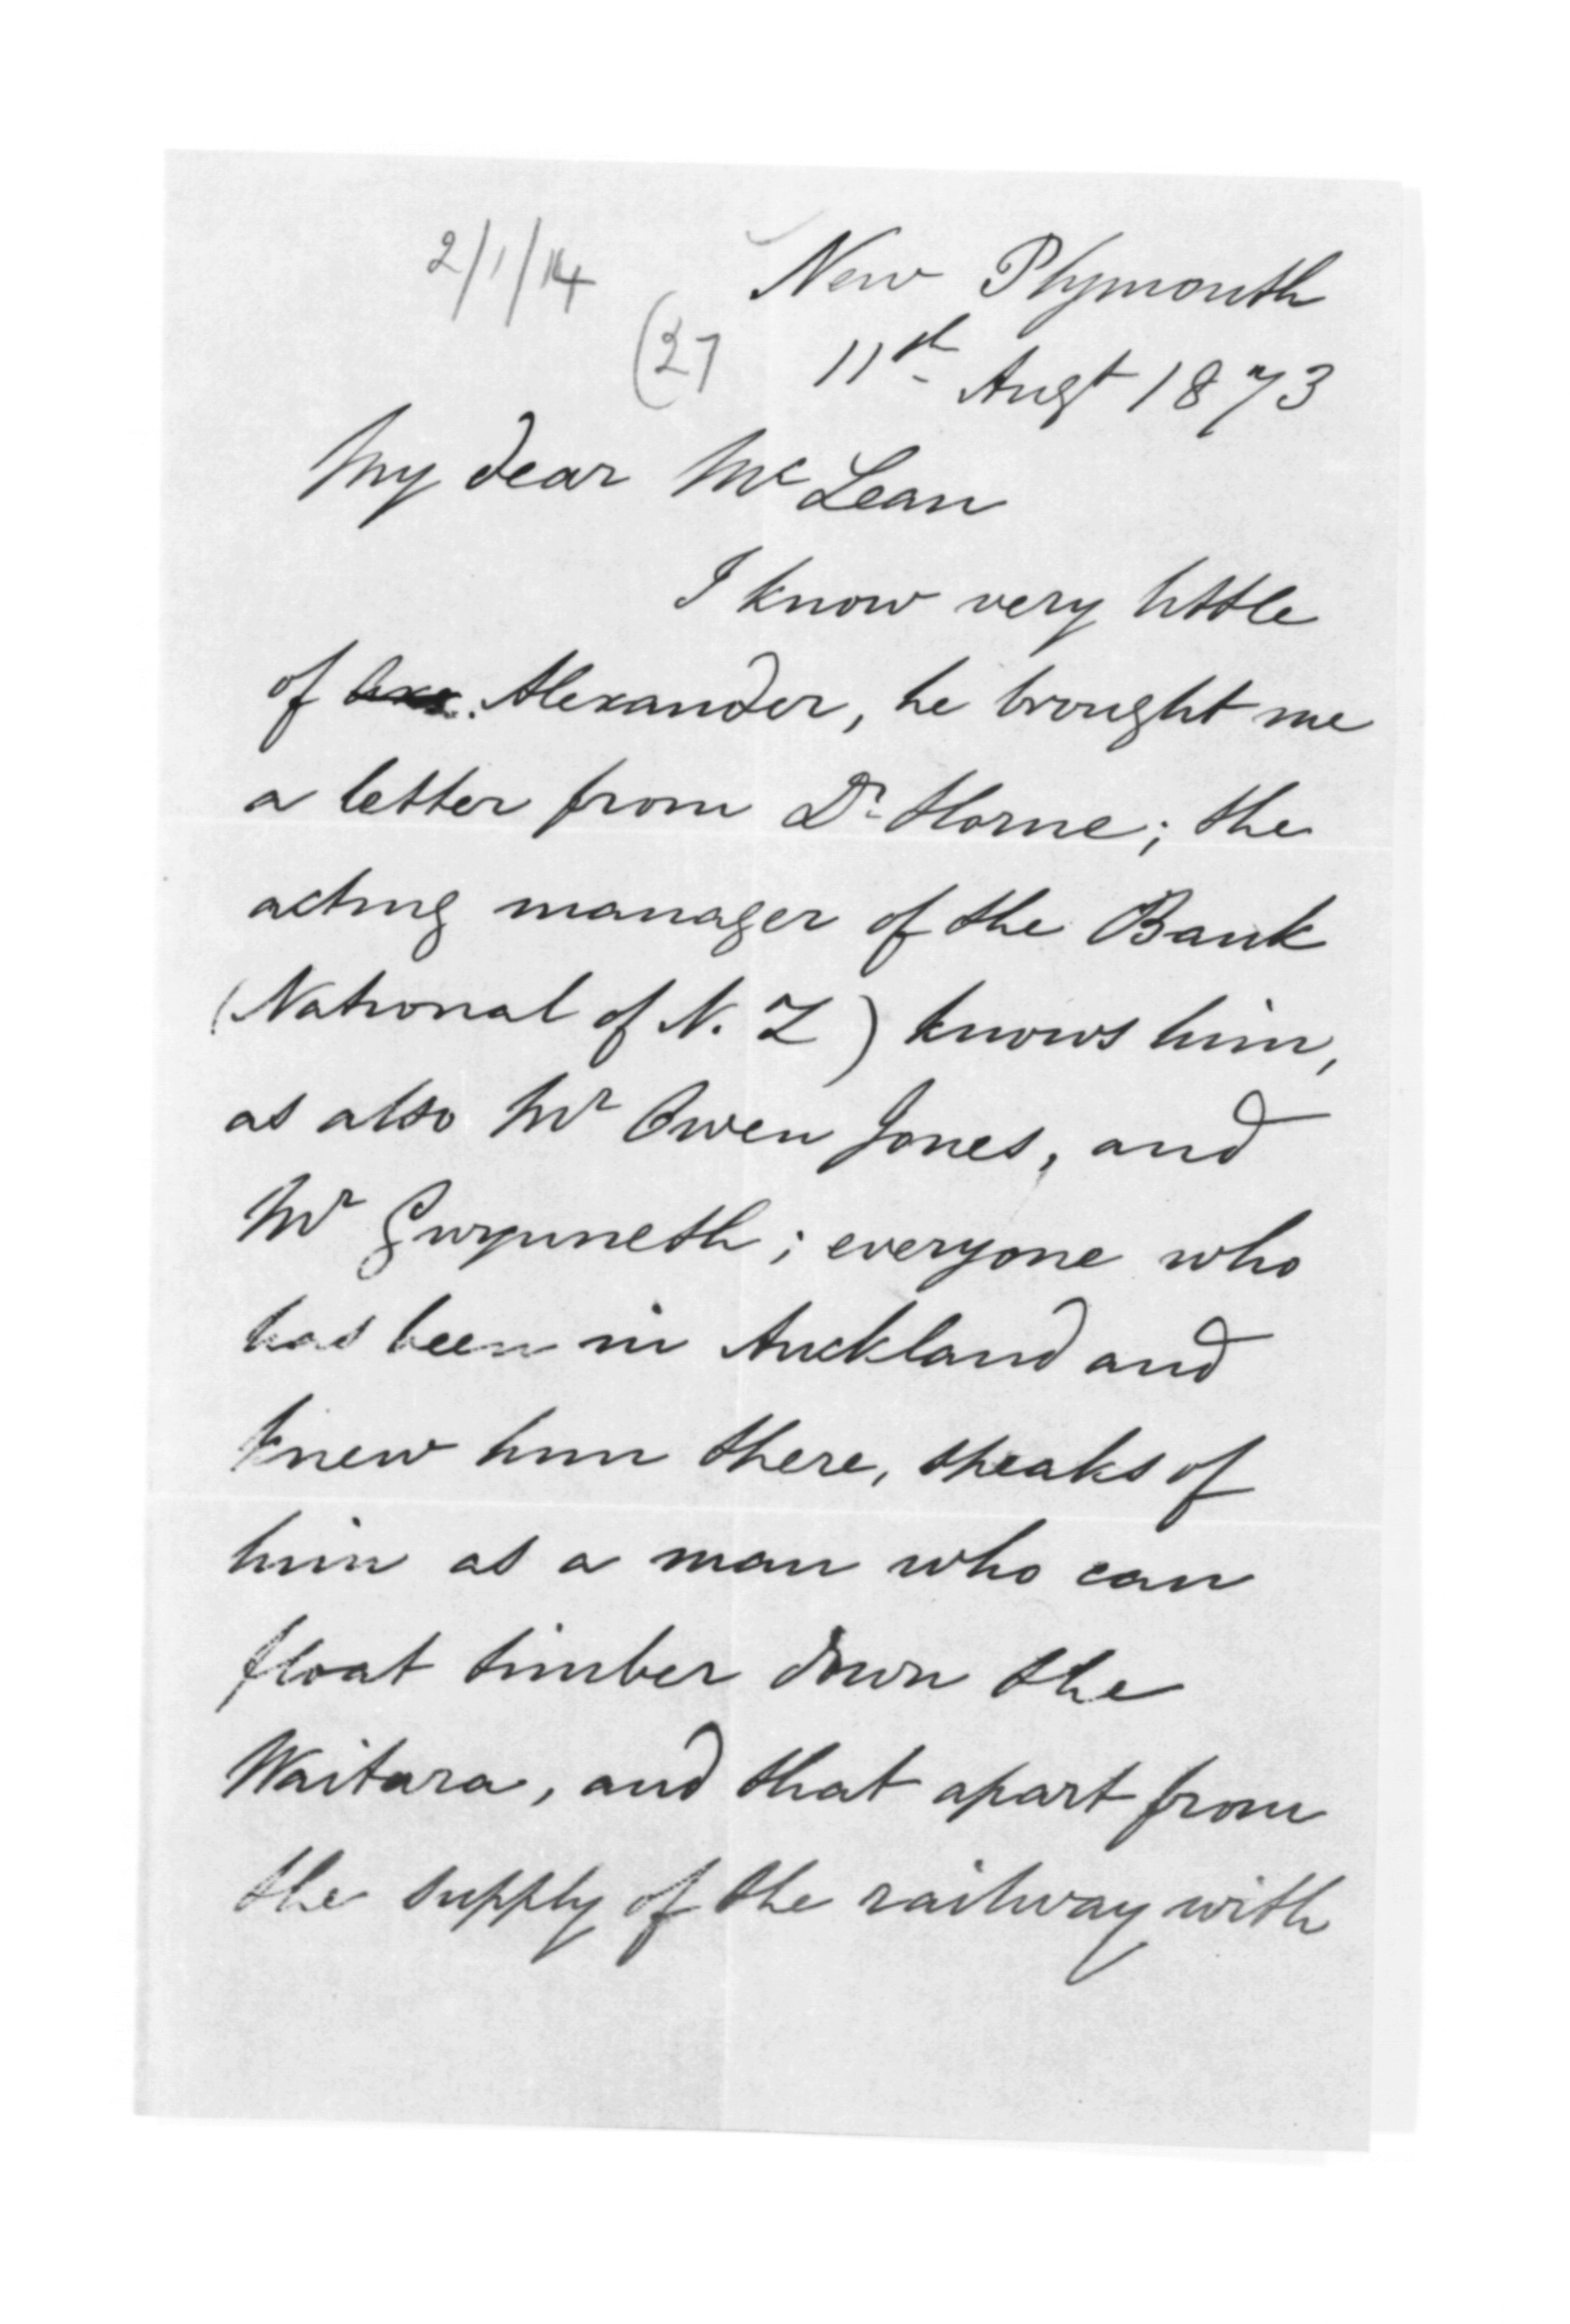 2/1/14
New Plymouth
(27
11th Augt 1873
My dear McLean
I know very little
of Alexander, he brought me
a letter from Dr Horne; the
acting manager of the Bank
(National of N. Z) knows him,
as also Mr Owen Jones, and
Mr Gwynneth; everyone who
has been in Auckland and
knew him there, speaks of
him as a man who can
float timber down the
Waitara, and that apart from
the supply of the railway with